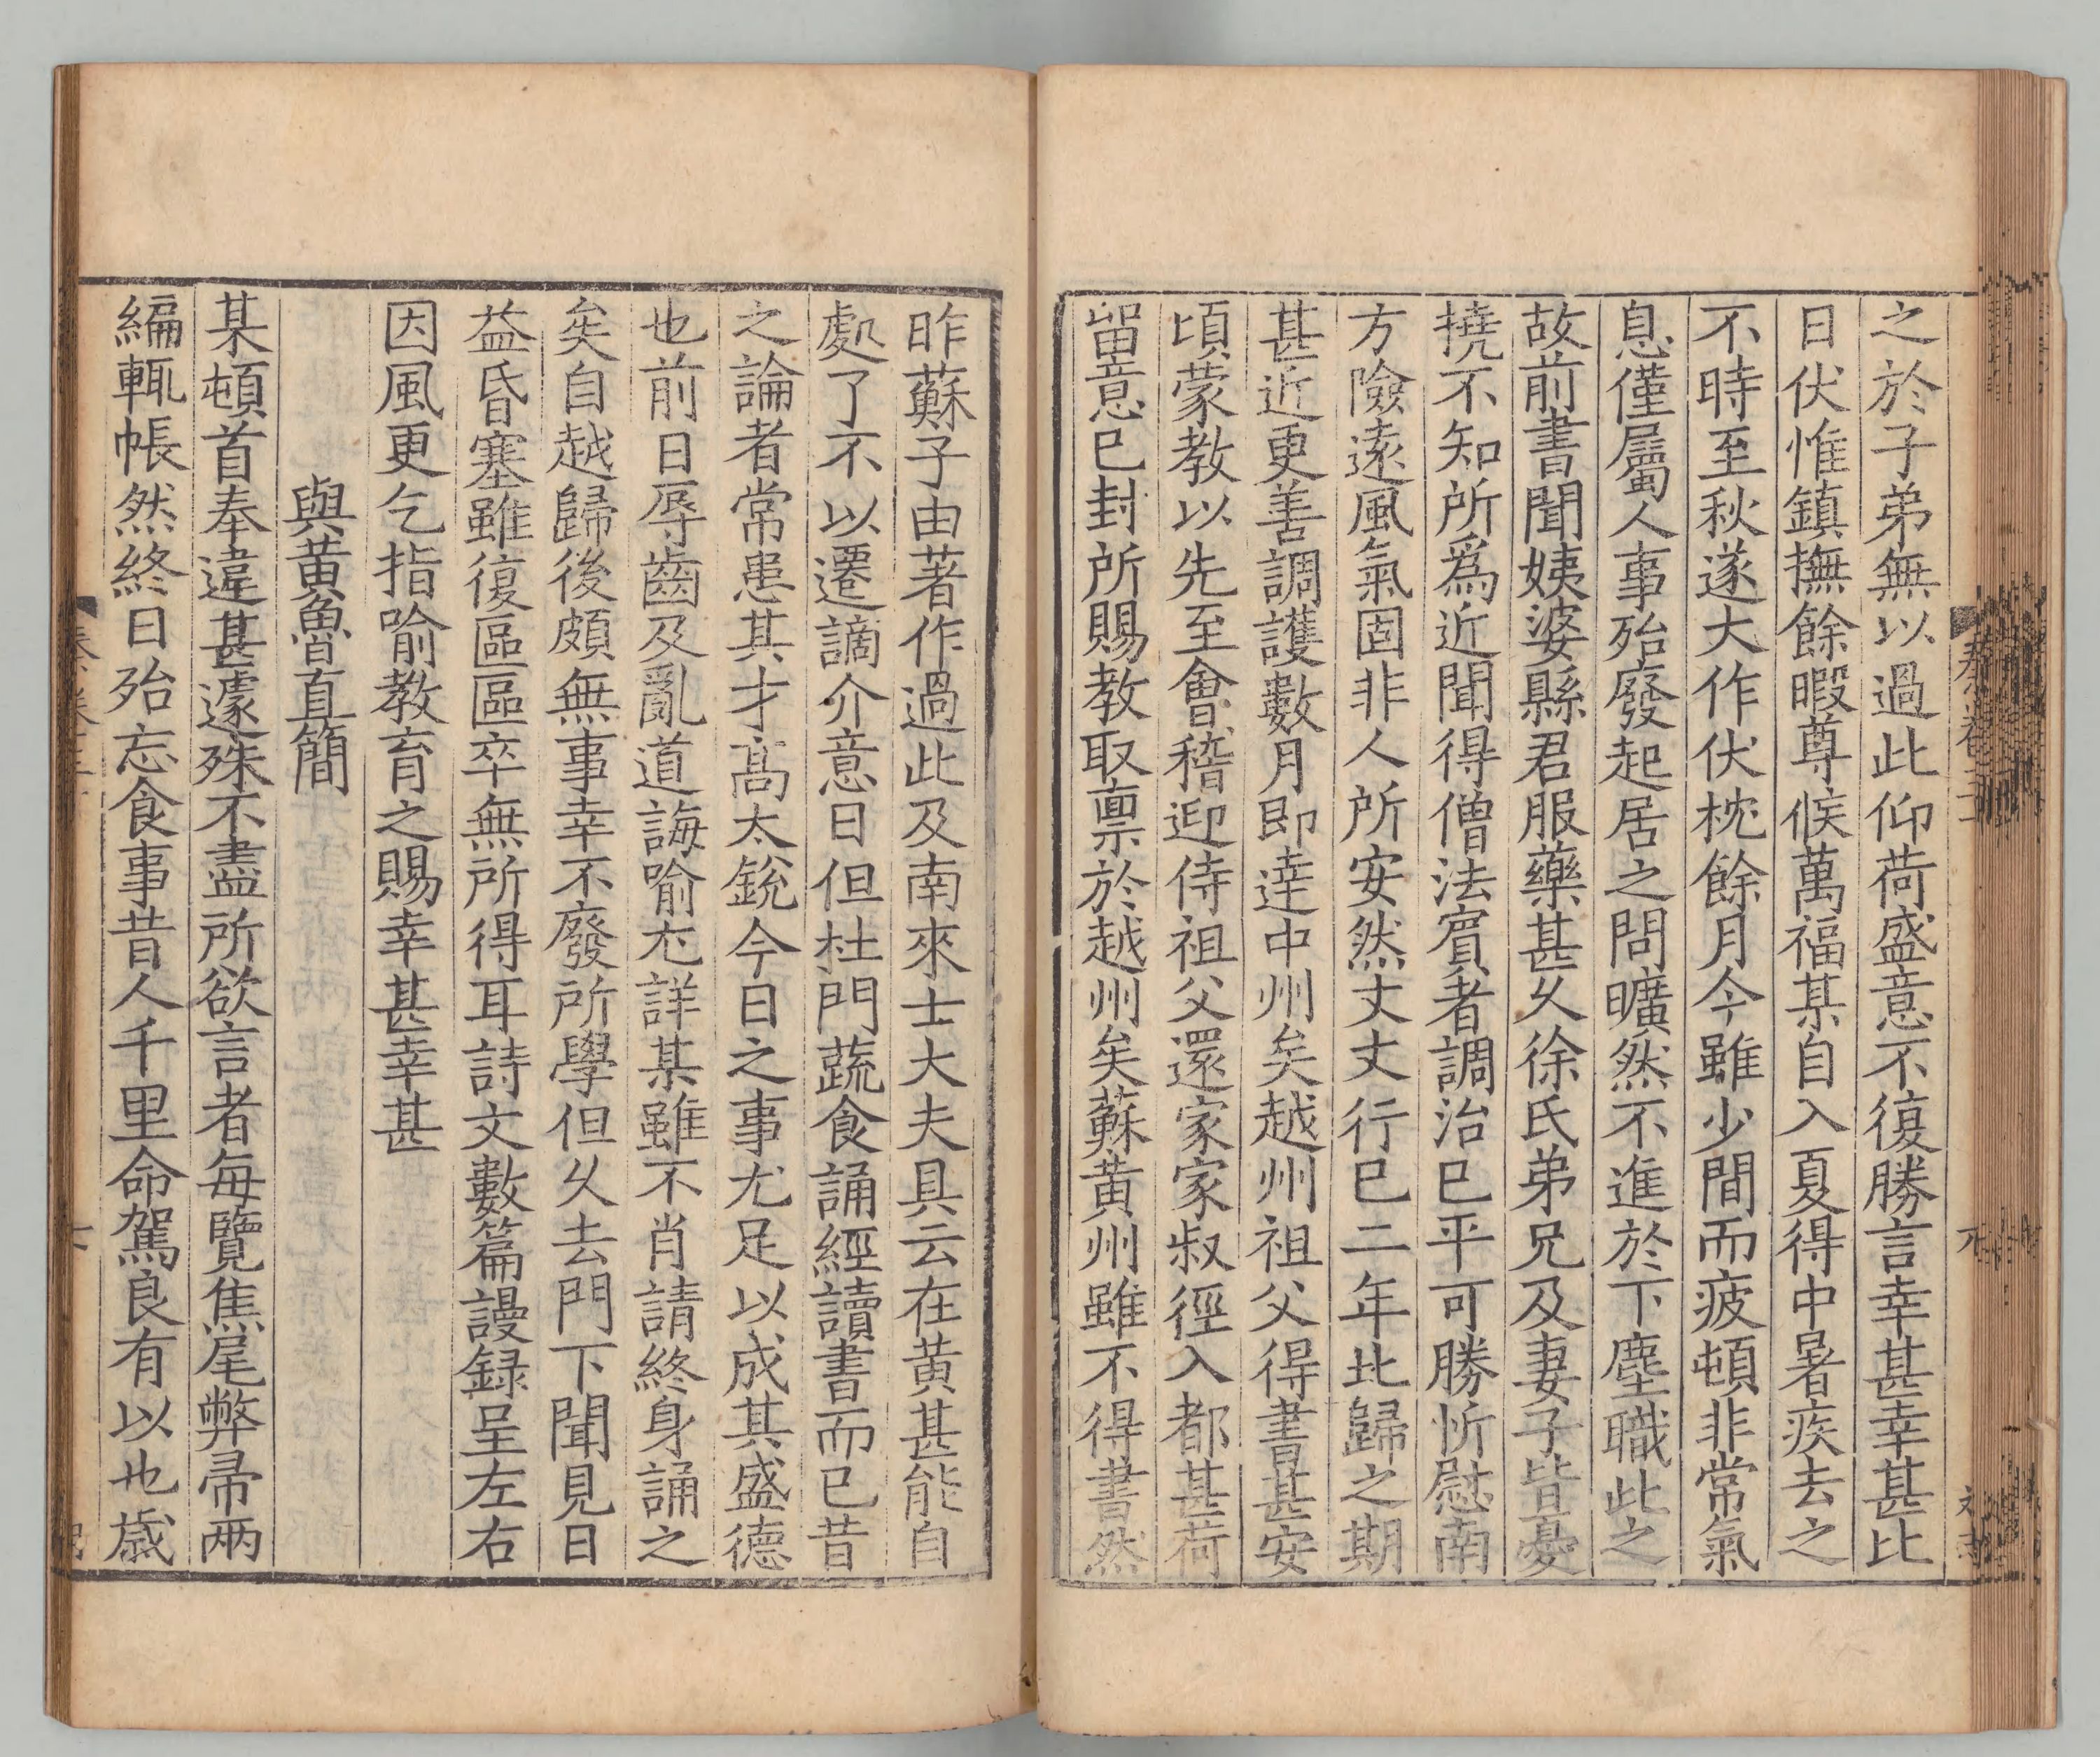 之於子弟無以過此仰荷盛意不復勝言幸甚幸甚比
日伏惟鎮撫餘暇尊候萬福某自入夏得中暑疾去之
不時至秋遂大作伏枕餘月今雖少間而疲頓非常氣
息僅屬人事殆廢起居之問曠然不進於下塵職此之
故前書聞姨婆縣君服藥甚久徐氏弟兄及妻子皆憂
撓不知所爲近聞得僧法賓者調治已平可勝忻慰南
方險遠風氣固非人所安然丈丈行已二年北歸之期
甚近更善調護數月即逹中州矣越州祖父得書甚安
頃蒙教以先至會稽迎侍祖父還家家叔徑入都甚荷
留意已封所賜教取禀於越州矣蘇黄州雖不得書然
昨蘇子由著作過此及南來士大夫具云在黄甚能自
處了不以遷謫介意日但杜門蔬食誦經讀書而已昔
之論者常患其才高太鋭今日之事尤足以成其盛德
也前日辱齒及亂道誨喻尤詳某雖不肖請終身誦之
矣自越歸後頗無事幸不廢所學但乆去門下聞見日
益昏塞雖復區區卒無所得耳詩文數篇謾録呈左右
因風更乞指喻教育之賜幸甚幸甚
與黄魯直簡
某頓首奉違甚遽殊不盡所欲言者每覽焦尾弊帚兩
編輒悵然終日殆忘食事昔人千里命駕良有以也歳